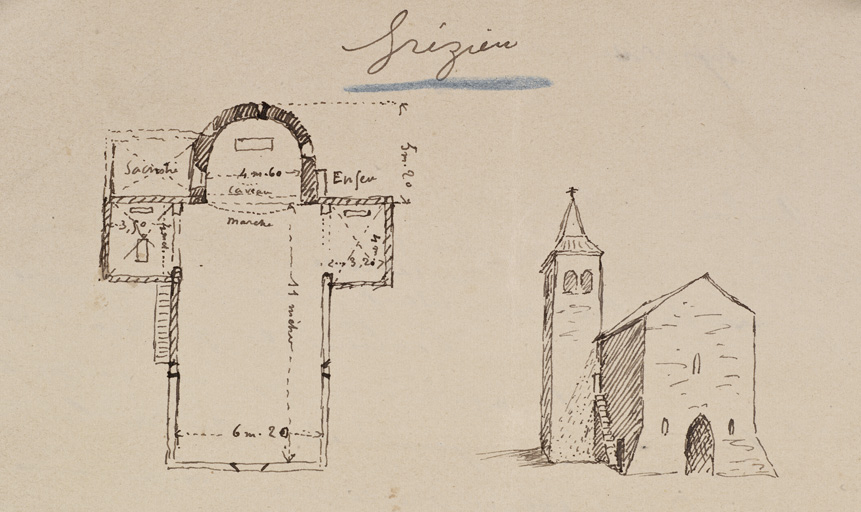 Grézieu
5m.20
Sacristie
4.m.60
Enfeu
caveau
marche
3,50
3,20
11 mètres
6 m. 20